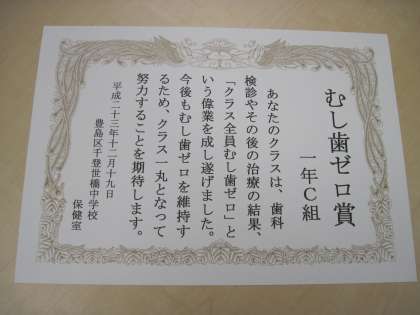 むし歯ゼロ賞
一年C組
あなたのクラスは、歯科
検診やその後の治療の結果、
「クラス全員むし歯ゼロ」と
いう偉業を成し遂げました。
今後もむし歯ゼロを維持す
るため、クラス一丸となって
努力することを期待します。
平成二十三年十二月十九日
豊島区千登世橋中学校
保健室